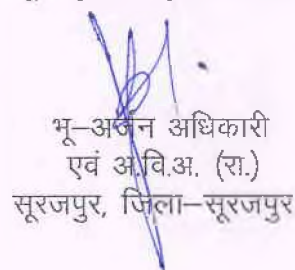 भू–अर्जन अधिकारी
एवं अ.वि.अ. (रा.)
सूरजपुर, जिला–सूरजपुर